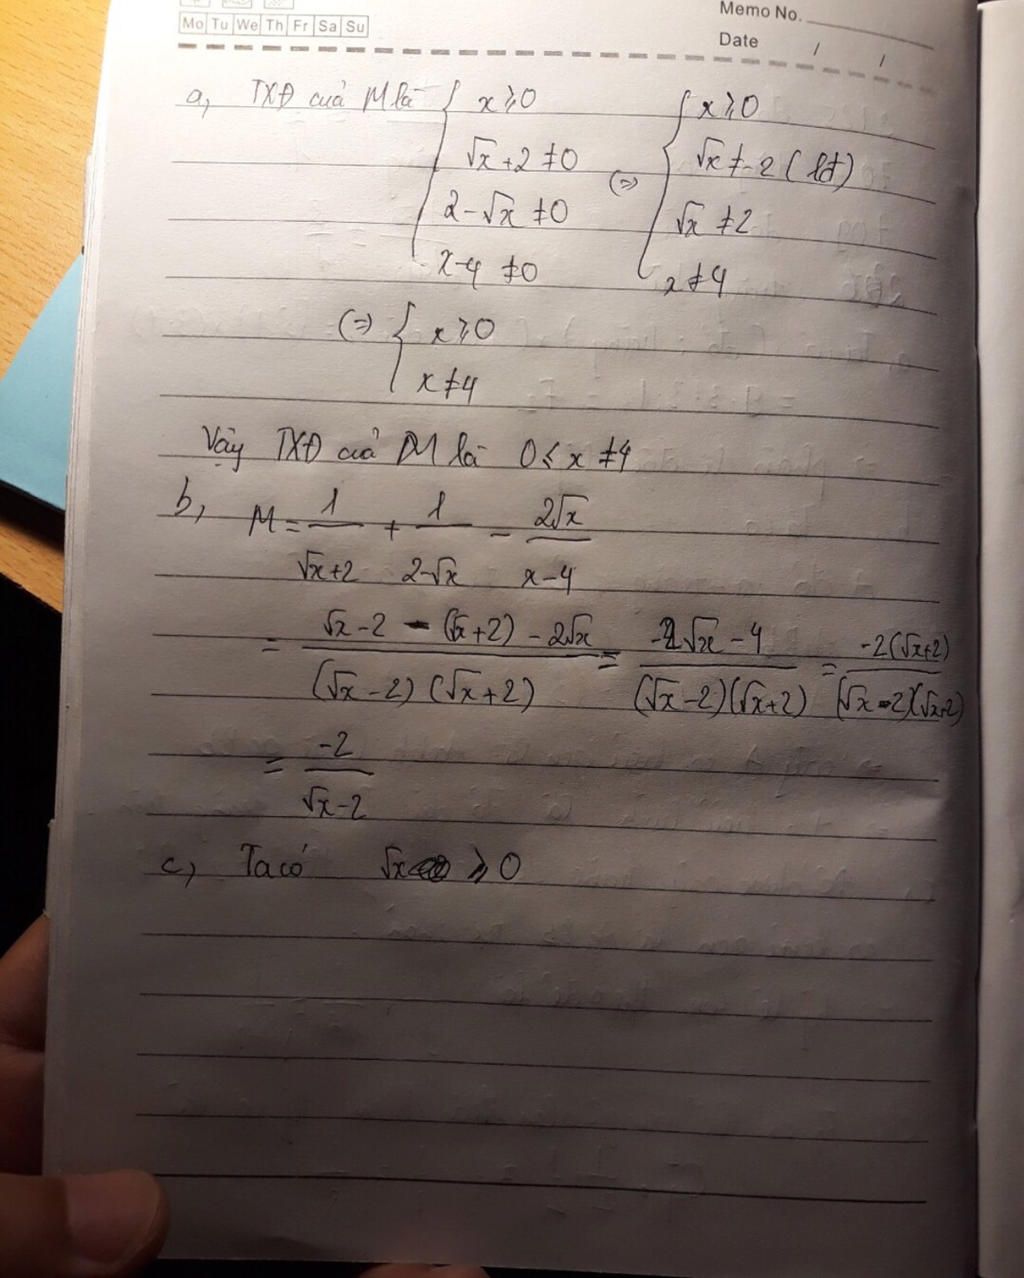 Mo Tu We Th Fr Sa Su
Memo No.
Date / /
a, TXĐ của M là { x ≥ 0 { x ≥ 0
√x + 2 ≠ 0 (=) √x ≠ -2 (lđ)
2 - √x ≠ 0 √x ≠ 2
x - 4 ≠ 0 x ≠ 4
(=) { x ≥ 0
x ≠ 4
Vậy TXĐ của M là 0 ≤ x ≠ 4
b, M = 1/(√x+2) + 1/(2-√x) - 2√x/(x-4)
= (√x-2 - (√x+2) - 2√x)/((√x-2)(√x+2)) = (-2√x-4)/((√x-2)(√x+2)) = -2(√x+2)/((√x-2)(√x+2))
= -2/(√x-2)
c, Ta có √x ≥ 0